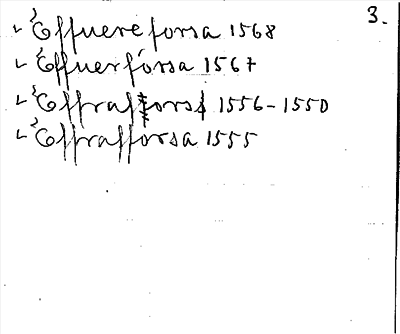 3.
Effuere forsa 1568
Effuerforsa 1567
Effrafforsa 1556-1550
Effrafforsa 1555